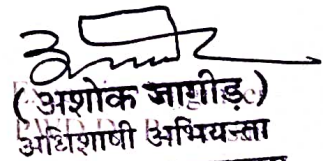 (अशोक जागीड़)
अधिशाषी अभियन्ता